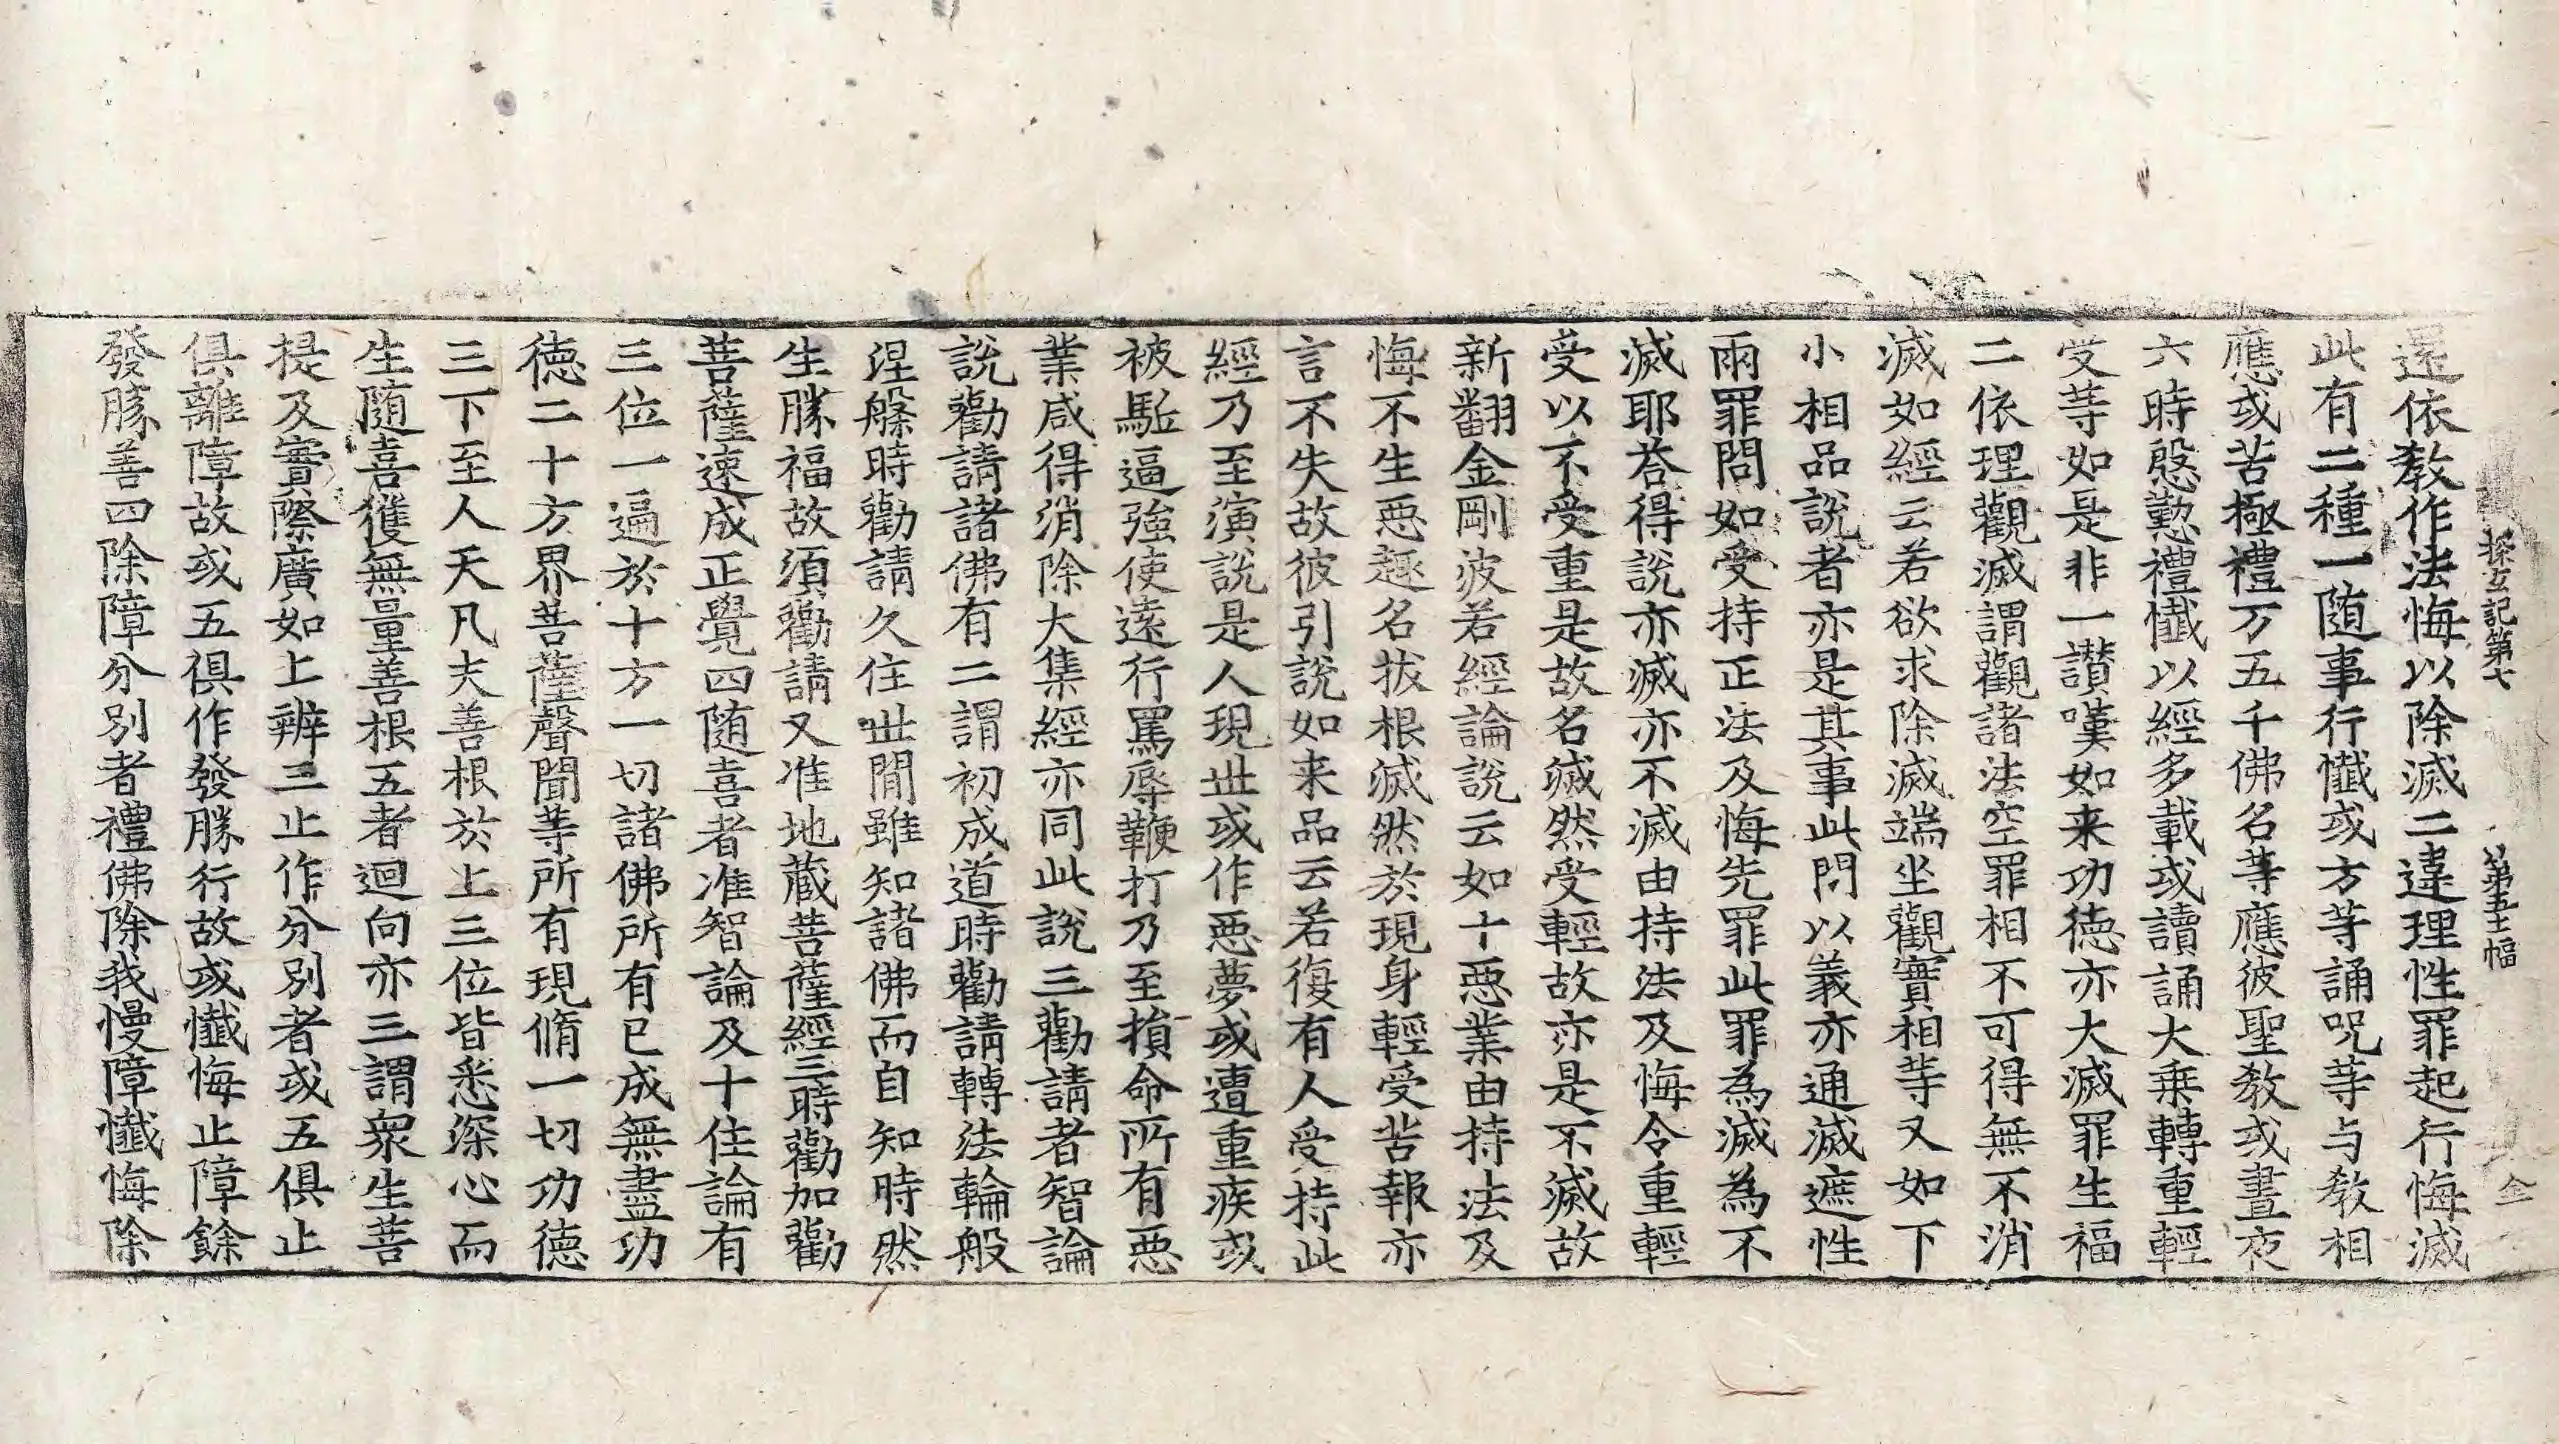 探玄記第七 第五十幅 金
還依教作法悔以除滅二違理性罪起行悔滅
此有二種一随事行懺或方等誦呪等与教相
應或苦極禮万五千佛名等應彼聖教或晝夜
六時慇懃禮懺以經多載或讀誦大乗轉重輕
受等如是非一讃嘆如来功徳亦大滅罪生福
二依理觀滅謂觀諸法空罪相不可得無不消
滅如經云若欲求除滅端坐觀實相等又如下
小相品說者亦是其事此問以義亦通滅遮性
兩罪問如受持正法及悔先罪此罪為滅為不
滅耶荅得說亦滅亦不滅由持法及悔令重輕
受以不受重是故名滅然受輕故亦是不滅故
新翻金剛波若經論說云如十惡業由持法及
悔不生惡趣名拔根滅然於現身輕受苦報亦
言不失故彼引說如来品云若復有人受持此
經乃至演說是人現世或作惡夢或遭重疾或
被駈逼強使遠行罵辱鞭打乃至損命所有惡
業咸得消除大集經亦同此說三勸請者智論
說勸請諸佛有二謂初成道時勸請轉法輪般
涅槃時勸請久住世間雖知諸佛而自知時然
生勝福故須勸請又准地蔵菩薩經三時勸加勸
菩薩速成正覺四随喜者准智論及十住論有
三位一遍於十方一切諸佛所有已成無盡功
徳二十方界菩薩聲聞等所有現脩一切功徳
三下至人天凡夫善根於上三位皆悉深心而
生随喜獲無量善根五者迴向亦三謂衆生菩
提及實際廣如上辨三止作分別者或五俱止
俱離障故或五俱作發勝行故或懺悔止障餘
發勝善四除障分別者禮佛除我慢障懺悔除